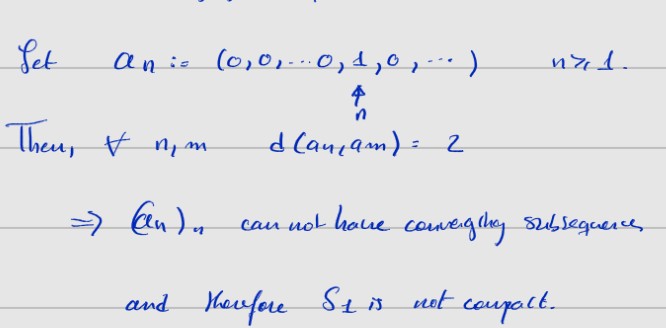 Let an := (0,0,...0,1,0,...) n⩾1.
↑
n
Then, ∀ n,m d(an,am) = 2
⇒ (an)n can not have converging subsequences
and therefore S1 is not compact.